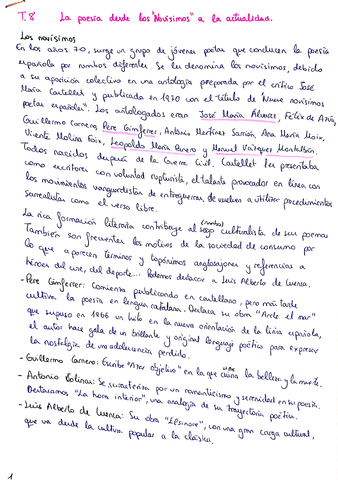 T.8 La poesía desde los "Novísimos" a la actualidad.
Los novísimos
En los años 70, surge un grupo de jóvenes poetas que conducen la poesía
española por rumbos diferentes. Se les denomina los novísimos, debido
a su aparición colectiva en una antología preparada por el crítico José
María Castellet y publicada en 1970 con el título de Nueve novísimos
poetas españoles". Los antologados eran José María Álvarez, Félix de Azúa,
Guillermo Carnero, Pere Gimferrer, Antonio Martínez Sarrión, Ana María Moix,
Vicente Molina Foix, Leopoldo María Panero y Manuel Vázquez Montalbán.
Todos nacidos después de la Guerra Civil. Castellet los presentaba
como escritores con voluntad rupturista, el talante provocador en línea con
los movimientos vanguardistas de entreguerras, se vuelven a utilizar procedimientos
surrealistas como el verso libre.
La rica formación literaria contribuye al sesgo culturalista de sus poemas
También son frecuentes los motivos de la sociedad de consumo por
lo que aparecen términos y topónimos anglosajones y referencias a
héroes del cine, del deporte... Podemos destacar a Luis Alberto de Cuenca.
- Pere Gimferrer: Comienza publicando en castellano, pero más tarde
cultiva la poesía en lengua catalana. Destaca su obra "Arde el mar"
que supuso en 1966 un hito en la nueva orientación de la lírica española,
el autor hace gala de un brillante y original lenguaje poético para expresar
la nostalgia de una adolescencia perdida.
- Guillermo Carnero: Escribe "A⁠" objetivo" en la que la belleza y la muerte.
- Antonio Colinas: Se caracteriza por un romanticismo y serenidad en su poesía.
Destacamos "La hora interior", una analogía de su trayectoria poética.
- Luis Alberto de Cuenca: Su obra "Elsinore", con una gran carga cultural,
que va desde la cultura popular a la clásica.
1